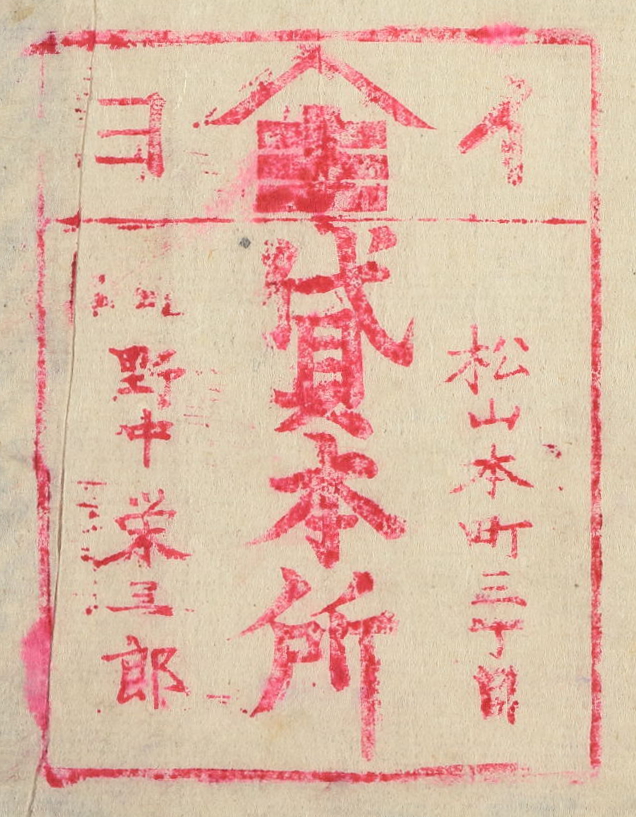 イ
ヨ
松山本町三丁目
貸本所
野中栄三郎